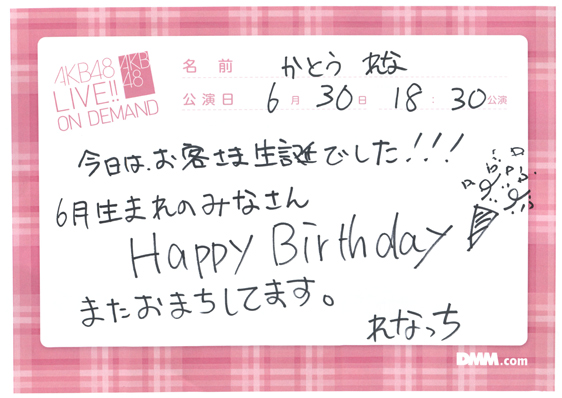 AKB48
LIVE!!
ON DEMAND
AKB
48
名前 かとう れな
公演日 6月30日 18:30公演
今日は、お客さま生誕でした!!!
6月生まれのみなさん
Happy Birthday
またおまちしてます。
れなっち
DMM.com